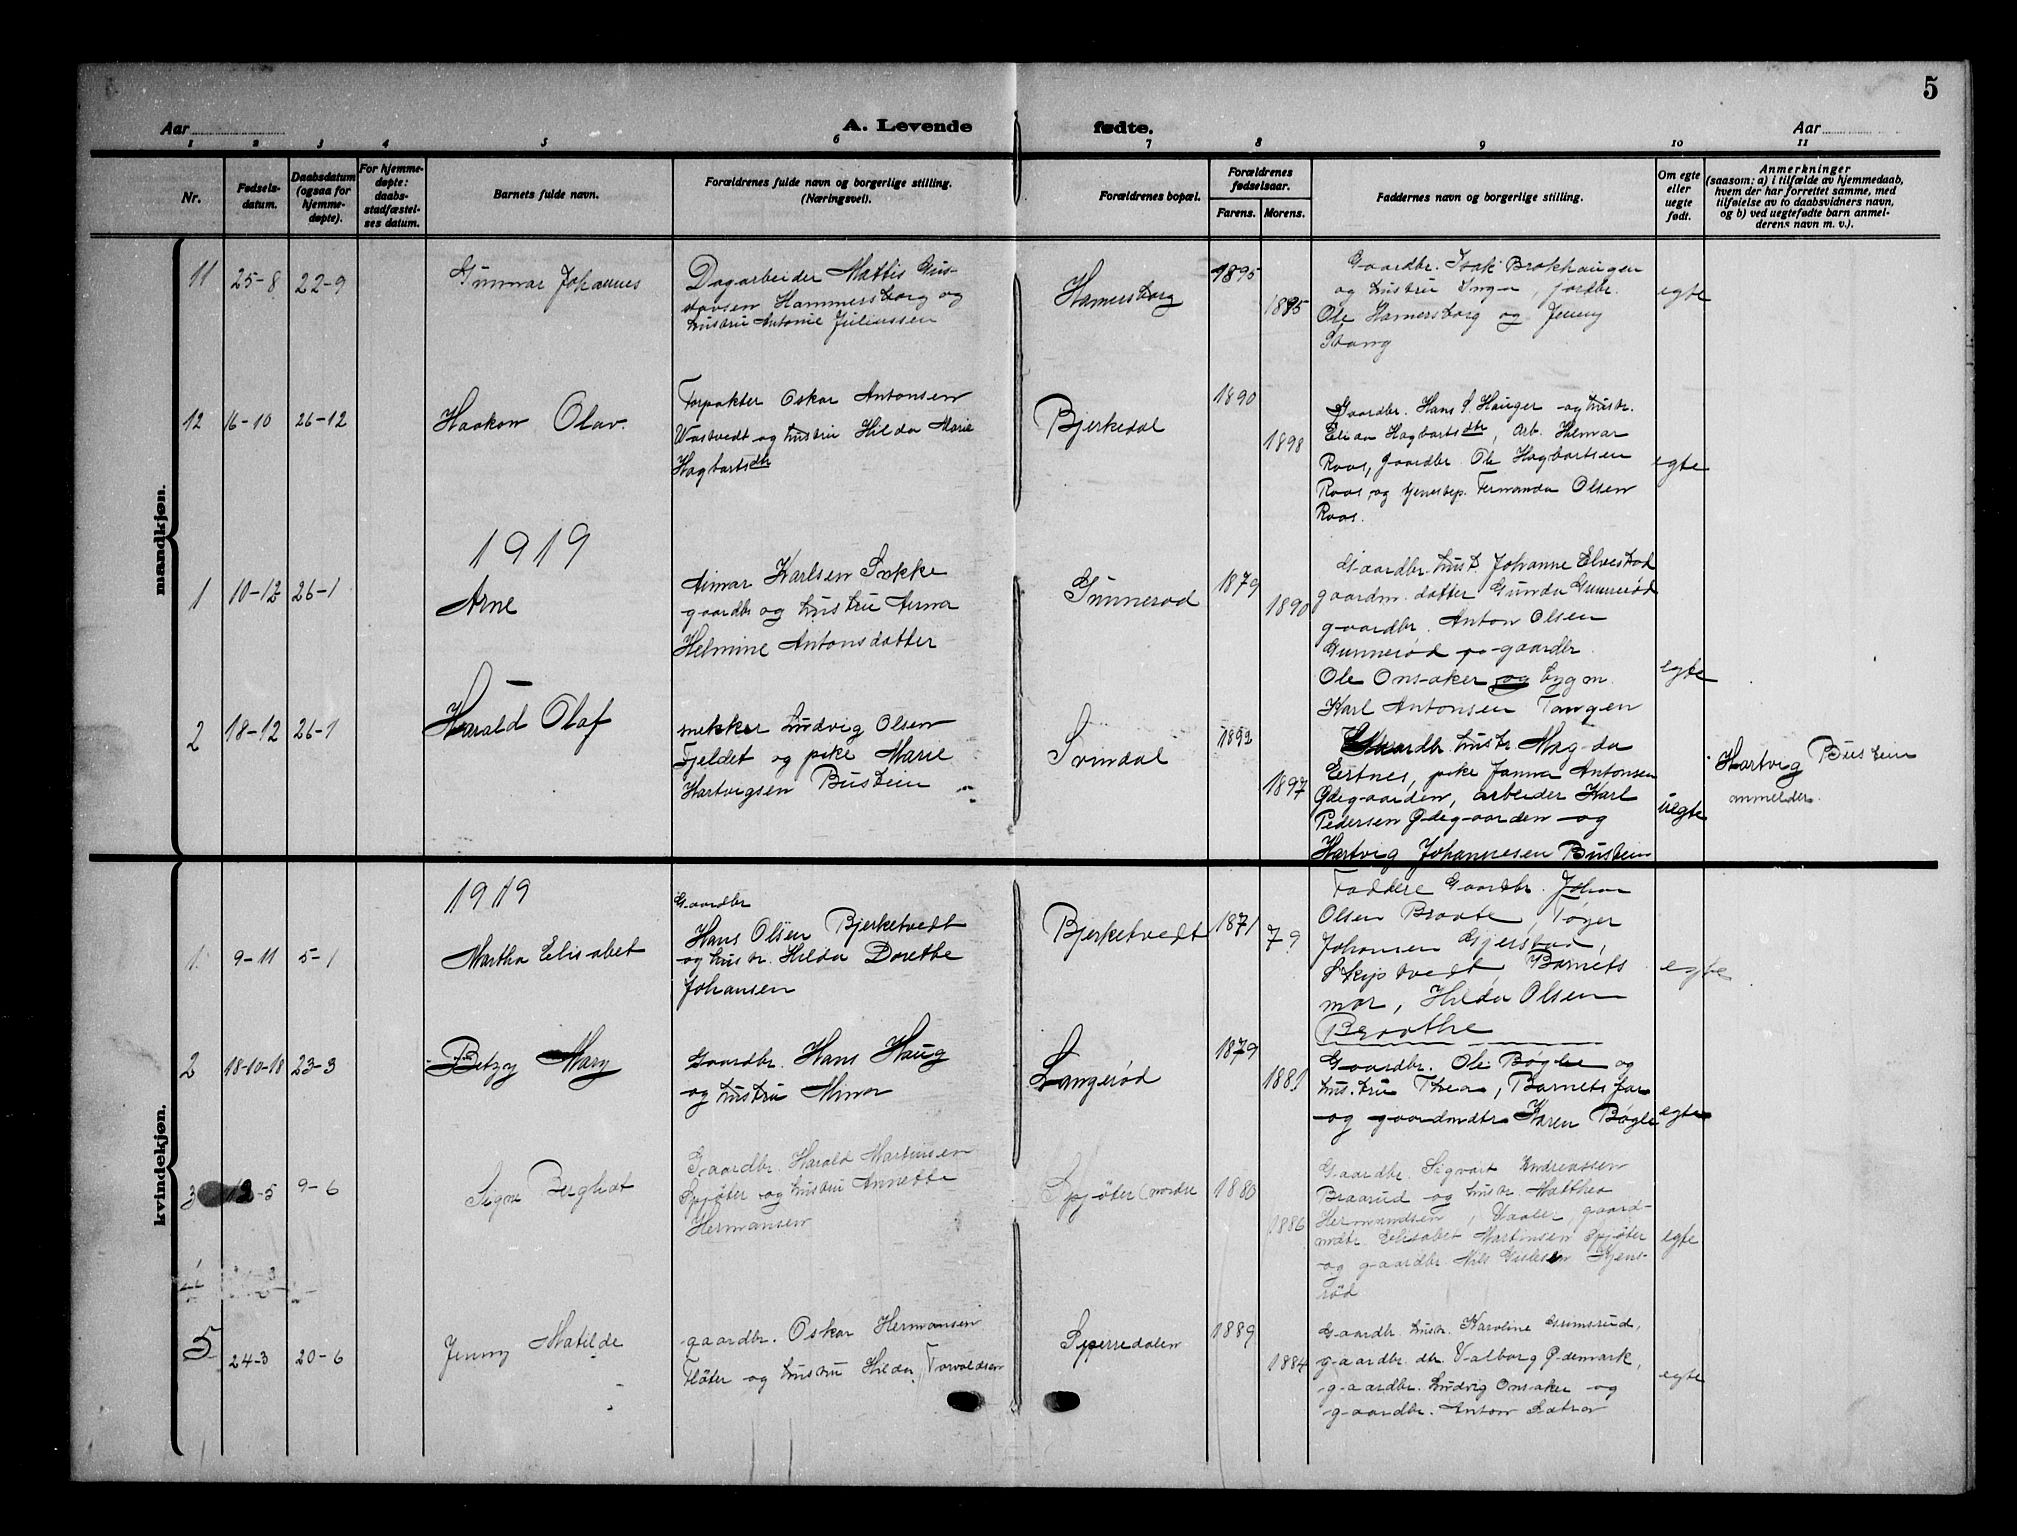 5
Aar
A. Levende fødte.
Aar
1 2 3 4 5 6 7 8 9 10 11
Nr.
Fødsels-
datum.
Daabsdatum
(ogsaa for
hjemme-
døpte).
For hjemme-
døpte:
daabs-
stadfæstel-
ses datum.
Barnets fulde navn.
Forældrenes fulde navn og borgerlige stilling.
(Næringsvei).
Forældrenes bopæl.
Forældrenes
fødselsaar.
Farens. Morens.
Faddernes navn og borgerlige stilling.
Om egte
eller
uegte
født.
Anmerkninger
(saasom: a) i tilfælde av hjemmedaab,
hvem der har forrettet samme, med
tilføielse av to daabsvidners navn,
og b) ved uegtefødte barn anmel-
derens navn m. v.).
mandkjøn.
11 25-8 22-9
Gunnar Johannes
Dagarbeider Mattis Gus-
tavsen Hammersborg og
hustru Antonie Juliussen
Hamersborg
1895
1895
Gaardbr. Isak Brokhaugen
og hustru Inga, jordbr.
Ole Hamersborg og Jenny
Stang
egte
12 16-10 26-12
Haakon Olav.
Forpakter Oskar Antonsen
Vastvedt og hustru Hilda Marie
Hagbartsdtr
Bjerkedal
1890
1898
Gaardbr. Hans S. Hauger og hustr.
Elida Hagbartsdtr, arb. Helmar
Roos, gaardbr. Ole Hagbartsen
Roos, og tjenestep. Fernanda Olsen
Roos.
egte
1919
1 10-12 26-1
Arne
Karlsen Sokke
gaardbr og hustru Anna
Helmine Antonsdatter
Gunnerød
1879
1890
Gaardbr. hust. Johanne Elvestad
gaardm. datter Gunda Gunnerød
gaardbr. Anton Olsen
Gunnerød gaardbr.
Ole Onsaker og bygm.
Karl Antonsen Tangen
egte
2 18-12 26-1
Harald Olaf
snekker Ludvig Olsen
Fjeldet og pike Marie
Hartvigsen Bustein
Svindal
1892
1897
Gaardbr. hustr Magda
Ertnes, pike Janna Antonsen
Ødegaarden, arbeider Karl
Pedersen Ødegaarden og
Hartvig Johannesen Bustein
uegte
Hartvig Bustein
anmelder.
kvindekjøn.
1919
1 9-11 5-1
Martha Elisabet
Gaardbr
Hans Olsen Bjerketvedt
og hustr. Hilda Dorethe
Johansen
Bjerketvedt
1871
79
Faddere Gaardbr. Johan
Olsen Braate, Tøger
Johansen Gjerstad,
Skiptvedt Barnets
mor, Hilda Olsen
Braathe
egte
2 18-10-18 23-3
Betzy Mary
Gaardbr. Hans Haug
og hustru Mina
Langerød
1879
1881
Gaardbr. Ole Bøgle og
hustru Thea, Barnets far
og gaardmdtr Karen Bøgle
egte
3 12-5 9-6
Signe Berghat
Gaardbr. Harald Martinsen
Spjøter og hustru Annette
Hermansen
Spjøter (nordre
1880
1886
Gaardbr. Sigvart Andreassen
Braarud og hustr. Matthea
Hermundsen, Vaaler, gaard-
mdtr. Elisabet Martinsen Spjøter
og gaardbr. Nils
rød
egte
5 24-3 20-6
Jenny Matilde
gaardbr. Oskar Hermansen
Fløter og hustru Hilda Torvaldsen
Sperredalen
1889
1884
Gaardbr. hustr. Karoline Gumsrud,
gaardbr. dtr. Valborg Ødemark,
gaardbr. Ludvig Onsaker og
gaardbr. Anton Sætra
egte